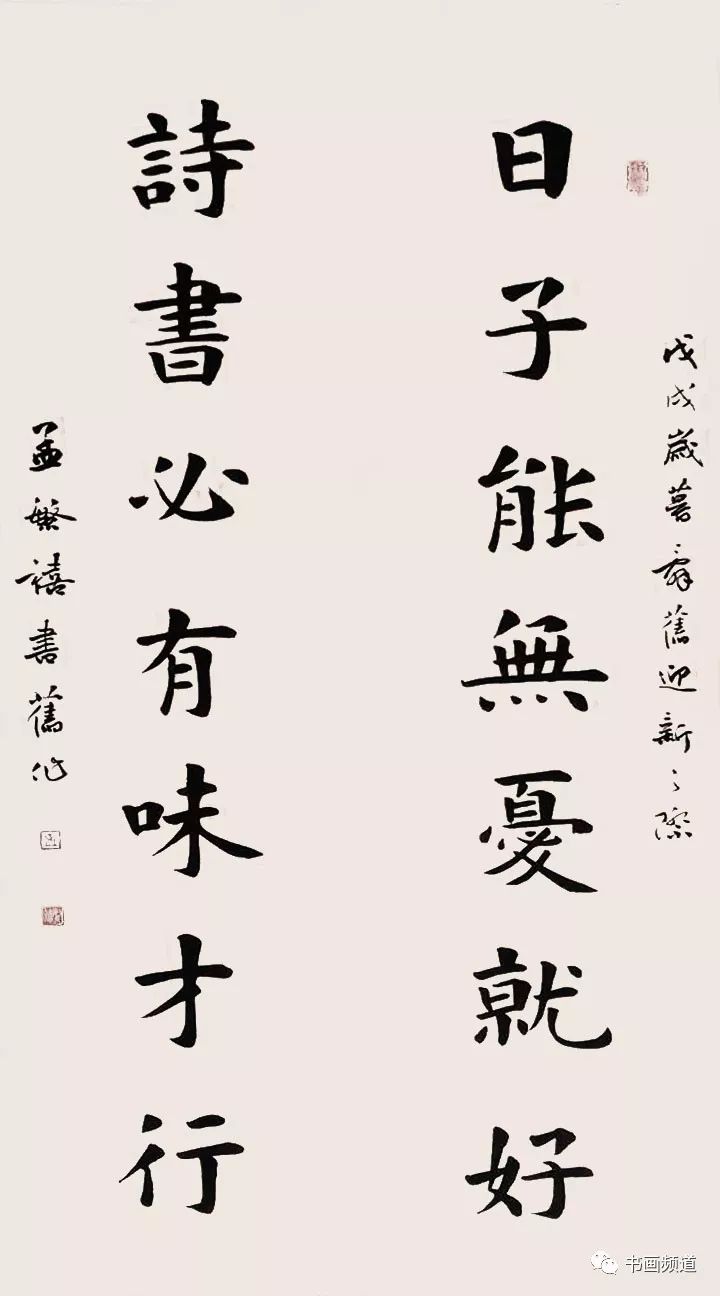 戊戌歲暮辭舊迎新之際
日子能無憂就好
詩書必有味才行
孟繁禧書舊作
书画频道